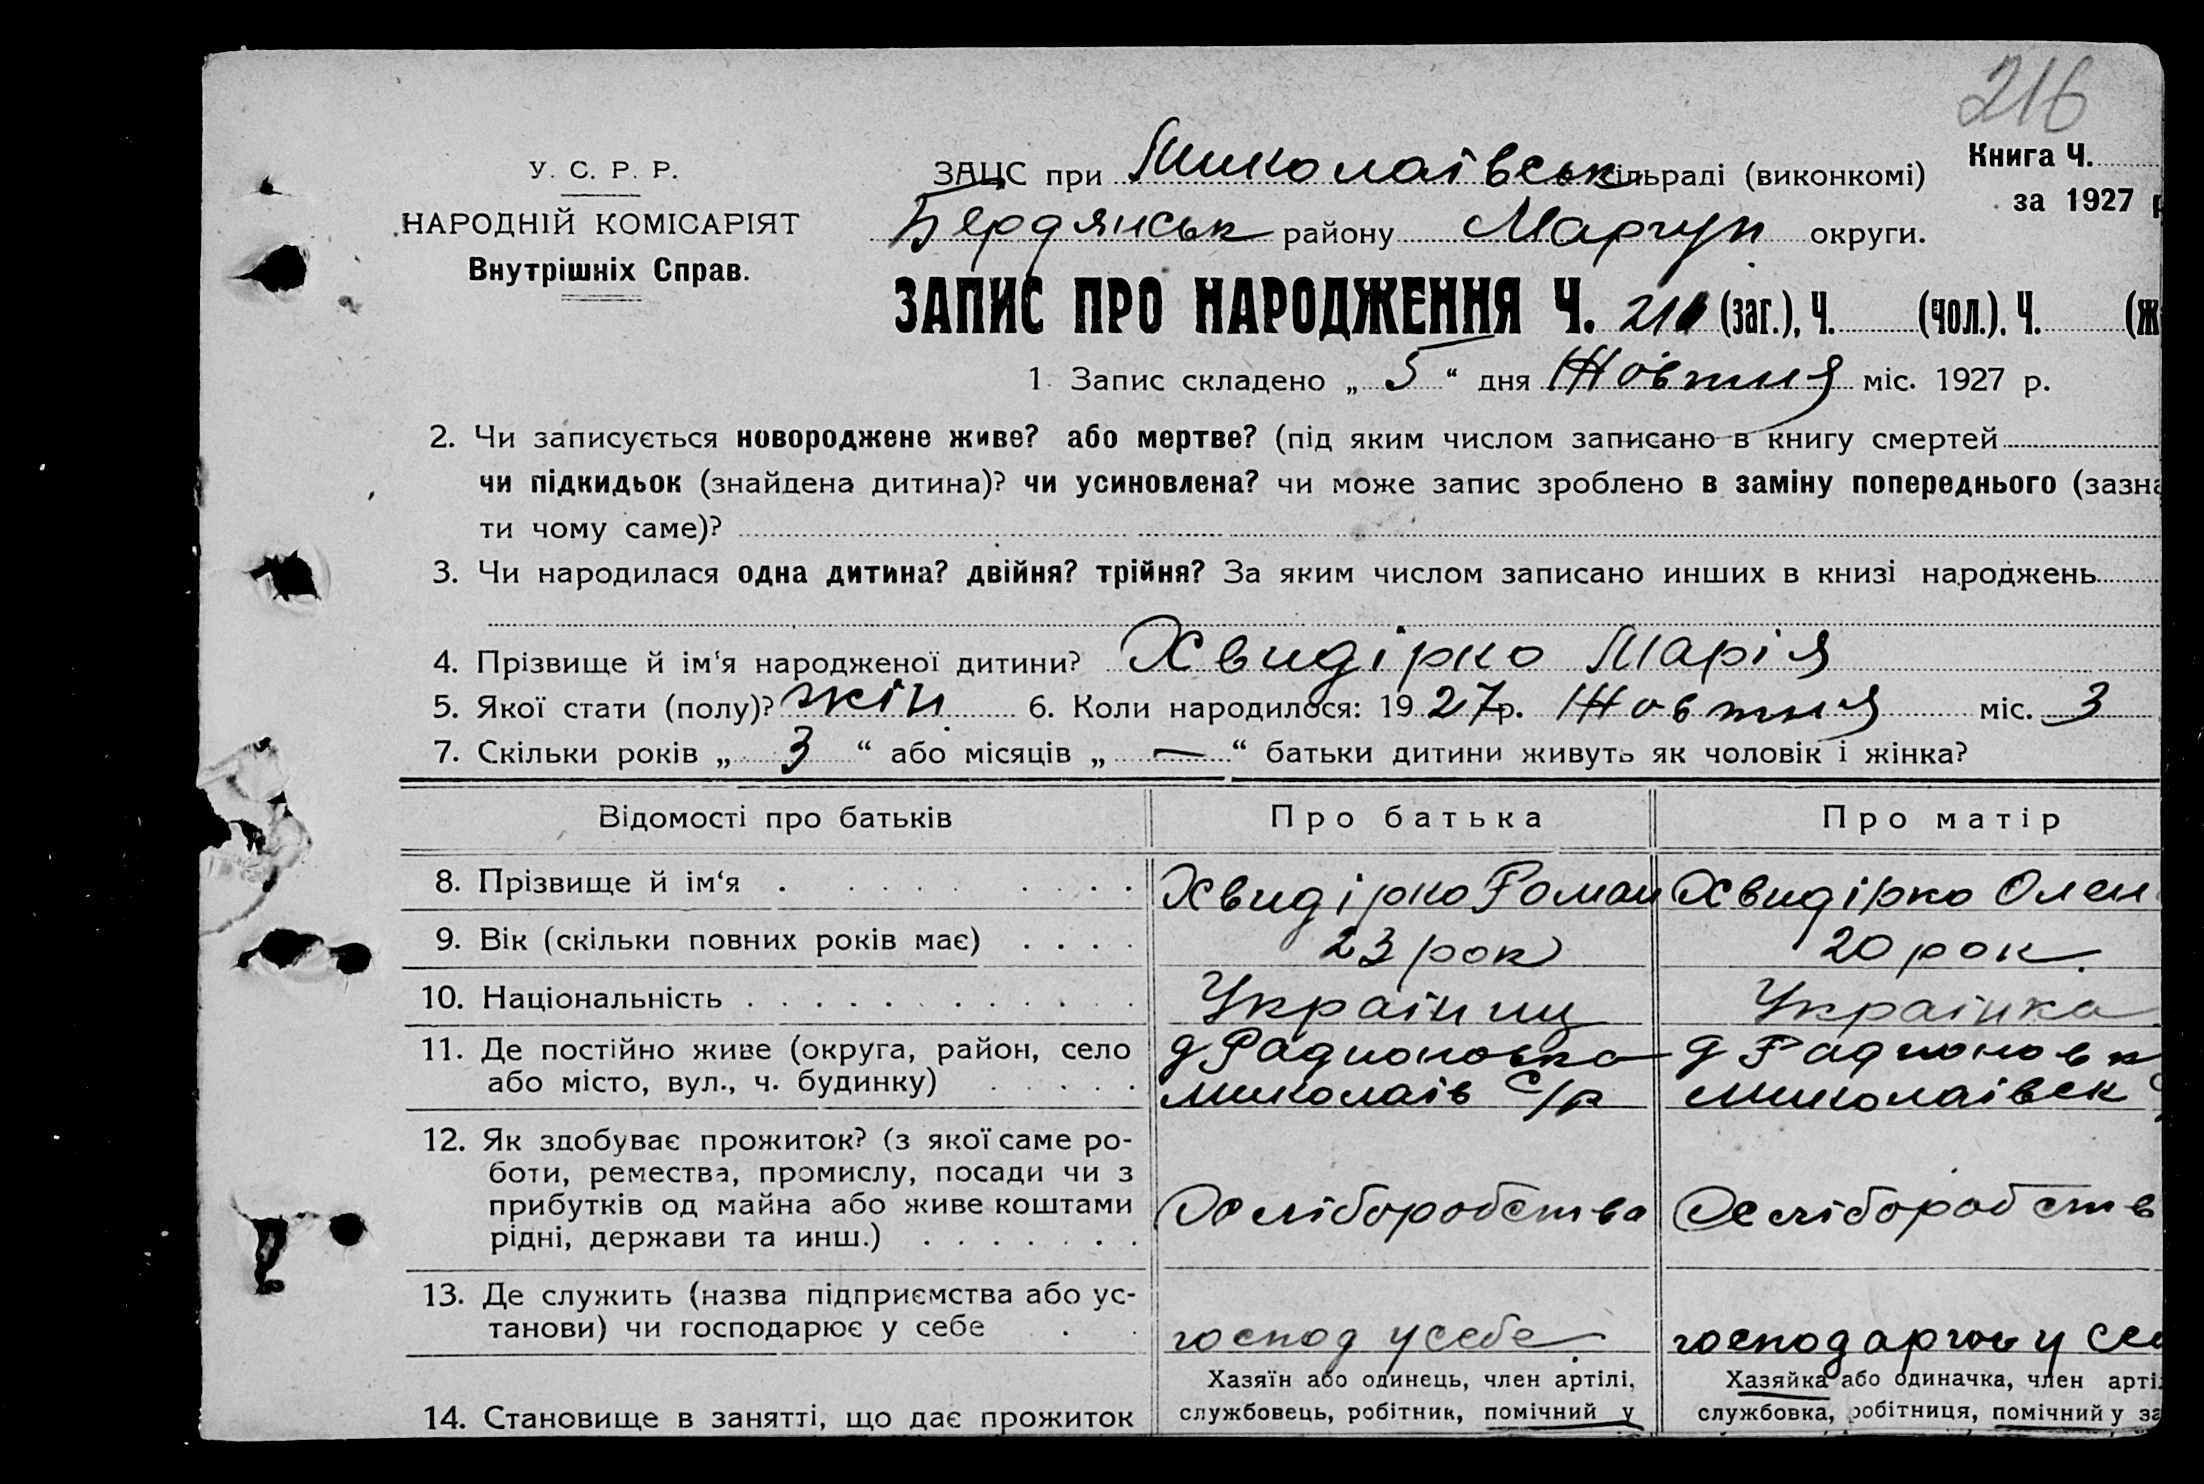 216
У. С. Р. Р.
НАРОДНІЙ КОМІСАРІЯТ
Внутрішніх Справ.
ЗАЦС при Миколаївськ сільраді (виконкомі)
Книга Ч.
за 1927 р
Бердянськ району Маріуп округи.
ЗАПИС ПРО НАРОДЖЕННЯ Ч. 216 (заг.), Ч. (чол.). Ч. (ж
1. Запис складено „ 5 “ дня Жовтня міс. 1927 р.
2. Чи записується новороджене живе? або мертве? (під яким числом записано в книгу смертей
чи підкидьок (знайдена дитина)? чи усиновлена? чи може запис зроблено в заміну попереднього (зазна
ти чому саме)?
3. Чи народилася одна дитина? двійня? трійня? За яким числом записано инших в книзі народжень
4. Прізвище й ім'я народженої дитини? Хвидірко Марія
5. Якої стати (полу)? жін 6. Коли народилося: 1927 р. Жовтня міс. 3
7. Скільки років „ 3 “ або місяців „ — “ батьки дитини живуть як чоловік і жінка?
Відомості про батьків Про батька Про матір
8. Прізвище й ім‘я Хвидірко Роман Хвидірко Олен
9. Вік (скільки повних років має) 23 рок 20 рок.
10. Національність Українц Українка
11. Де постійно живе (округа, район, село д Радионовка д Радионовк
або місто, вул., ч. будинку) Миколаїв С/р Миколаївск С
12. Як здобуває прожиток? (з якої саме ро-
боти, ремества, промислу, посади чи з
прибутків од майна або живе коштами Хліборобства Хліборобств
рідні, держави та инш.)
13. Де служить (назва підприємства або ус-
танови) чи господарює у себе господ у себе. господарює у себ
Хазяїн або одинець, член артілі, Хазяйка або одиначка, член арті
14. Становище в занятті, що дає прожиток службовець, робітник, помічний у службовка, робітниця, помічний у за